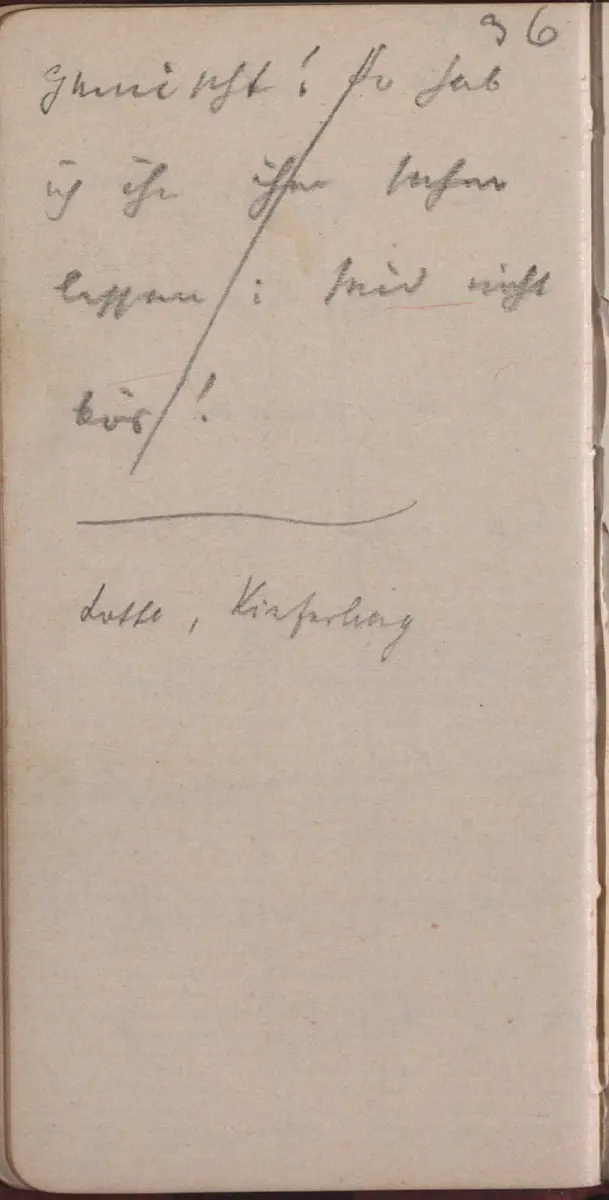 36
gemischt! So hab
ich ihr ihren
lassen: seid nicht
bös!
Lotte, Kieferberg